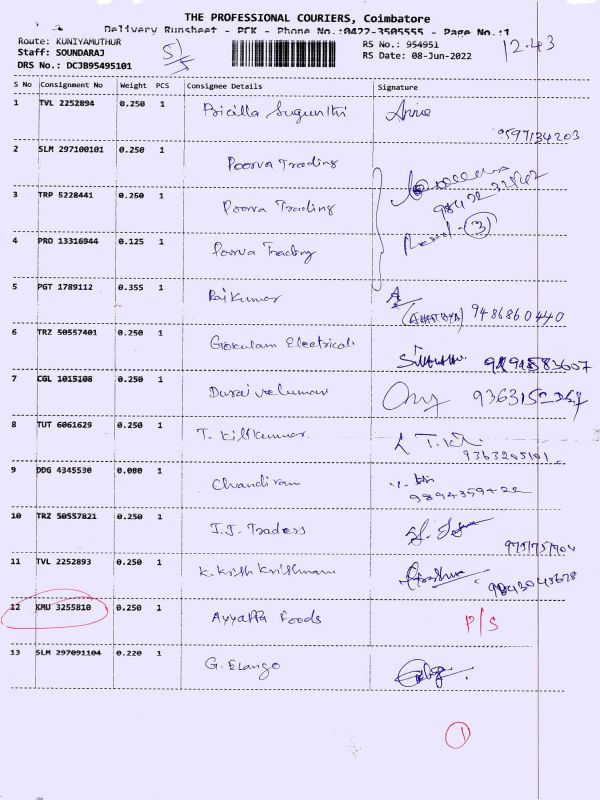 THE PROFESSIONAL COURIERS, Coimbatore
Delivery Runsheet - PCK - Phone No.:0422-3505555 - Page No.:1
Route: KUNIYAMUTHUR
Staff: SOUNDARAJ
DRS No.: DCJB95495101
5/5
RS No.: 954951
RS Date: 08-Jun-2022
12.43
S No Consignment No Weight PCS Consignee Details Signature
1 TVL 2252894 0.250 1 Pricilla Sugunthi Annie
9597134203
2 SLM 297100101 0.250 1 Poorva Trading
3 TRP 5228441 0.250 1 Poorva Trading
(3)
4 PRO 13316944 0.125 1 Poorva Trading
5 PGT 1789112 0.355 1 Raj Kumar
9486860440
6 TRZ 50557401 0.250 1 Gokulam Electricals
7 CGL 1015108 0.250 1 Duraivelumani
8 TUT 6061629 0.250 1 T.
9363205101
9 DDG 4345530 0.080 1 Chandiram
10 TRZ 50557821 0.250 1 J.J. Traders
11 TVL 2252893 0.250 1 K. Krish Krishnan
12 KMU 3255810 0.250 1 Ayyappa Foods P/S
13 SLM 297091104 0.220 1 G. Elango
1